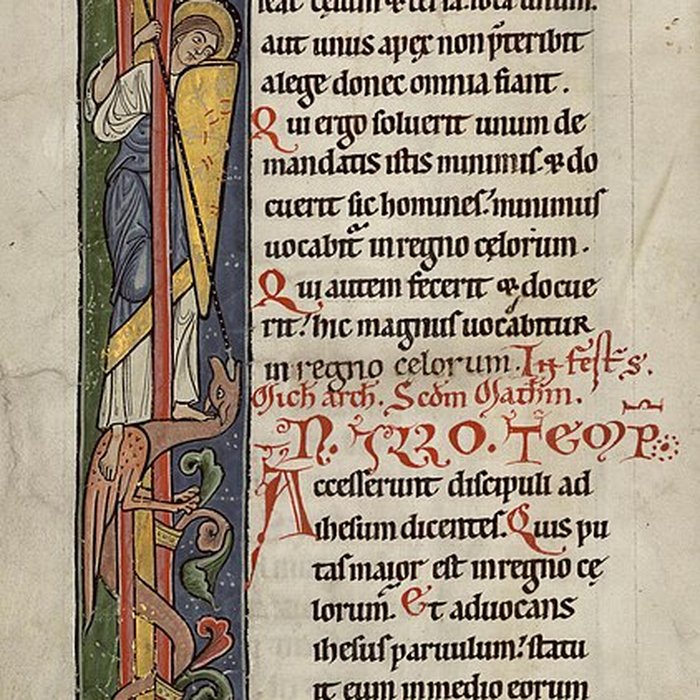 ieat cęlum & terra. iota unum.
aut unus apex non p̄teribit
alege donec omnia fiant.
Qui ergo soluerit unum de
mandatis istis minimis. & do
cuerit sic homines. minimus
uocabit᷑ inregno cęlorum.
Qui autem fecerit & docue
rit. hic magnus uocabitur
in regno celorum. In fest s.
Mich arch. Scdm Mathm.
IN. ILLO. TEMP̄.
Accesserunt discipuli ad
ihesum dicentes. Quis pu
tas maior est inregno cę
lorum. Et aduocans
ihesus paruulum. statu
it eum inmedio eorum